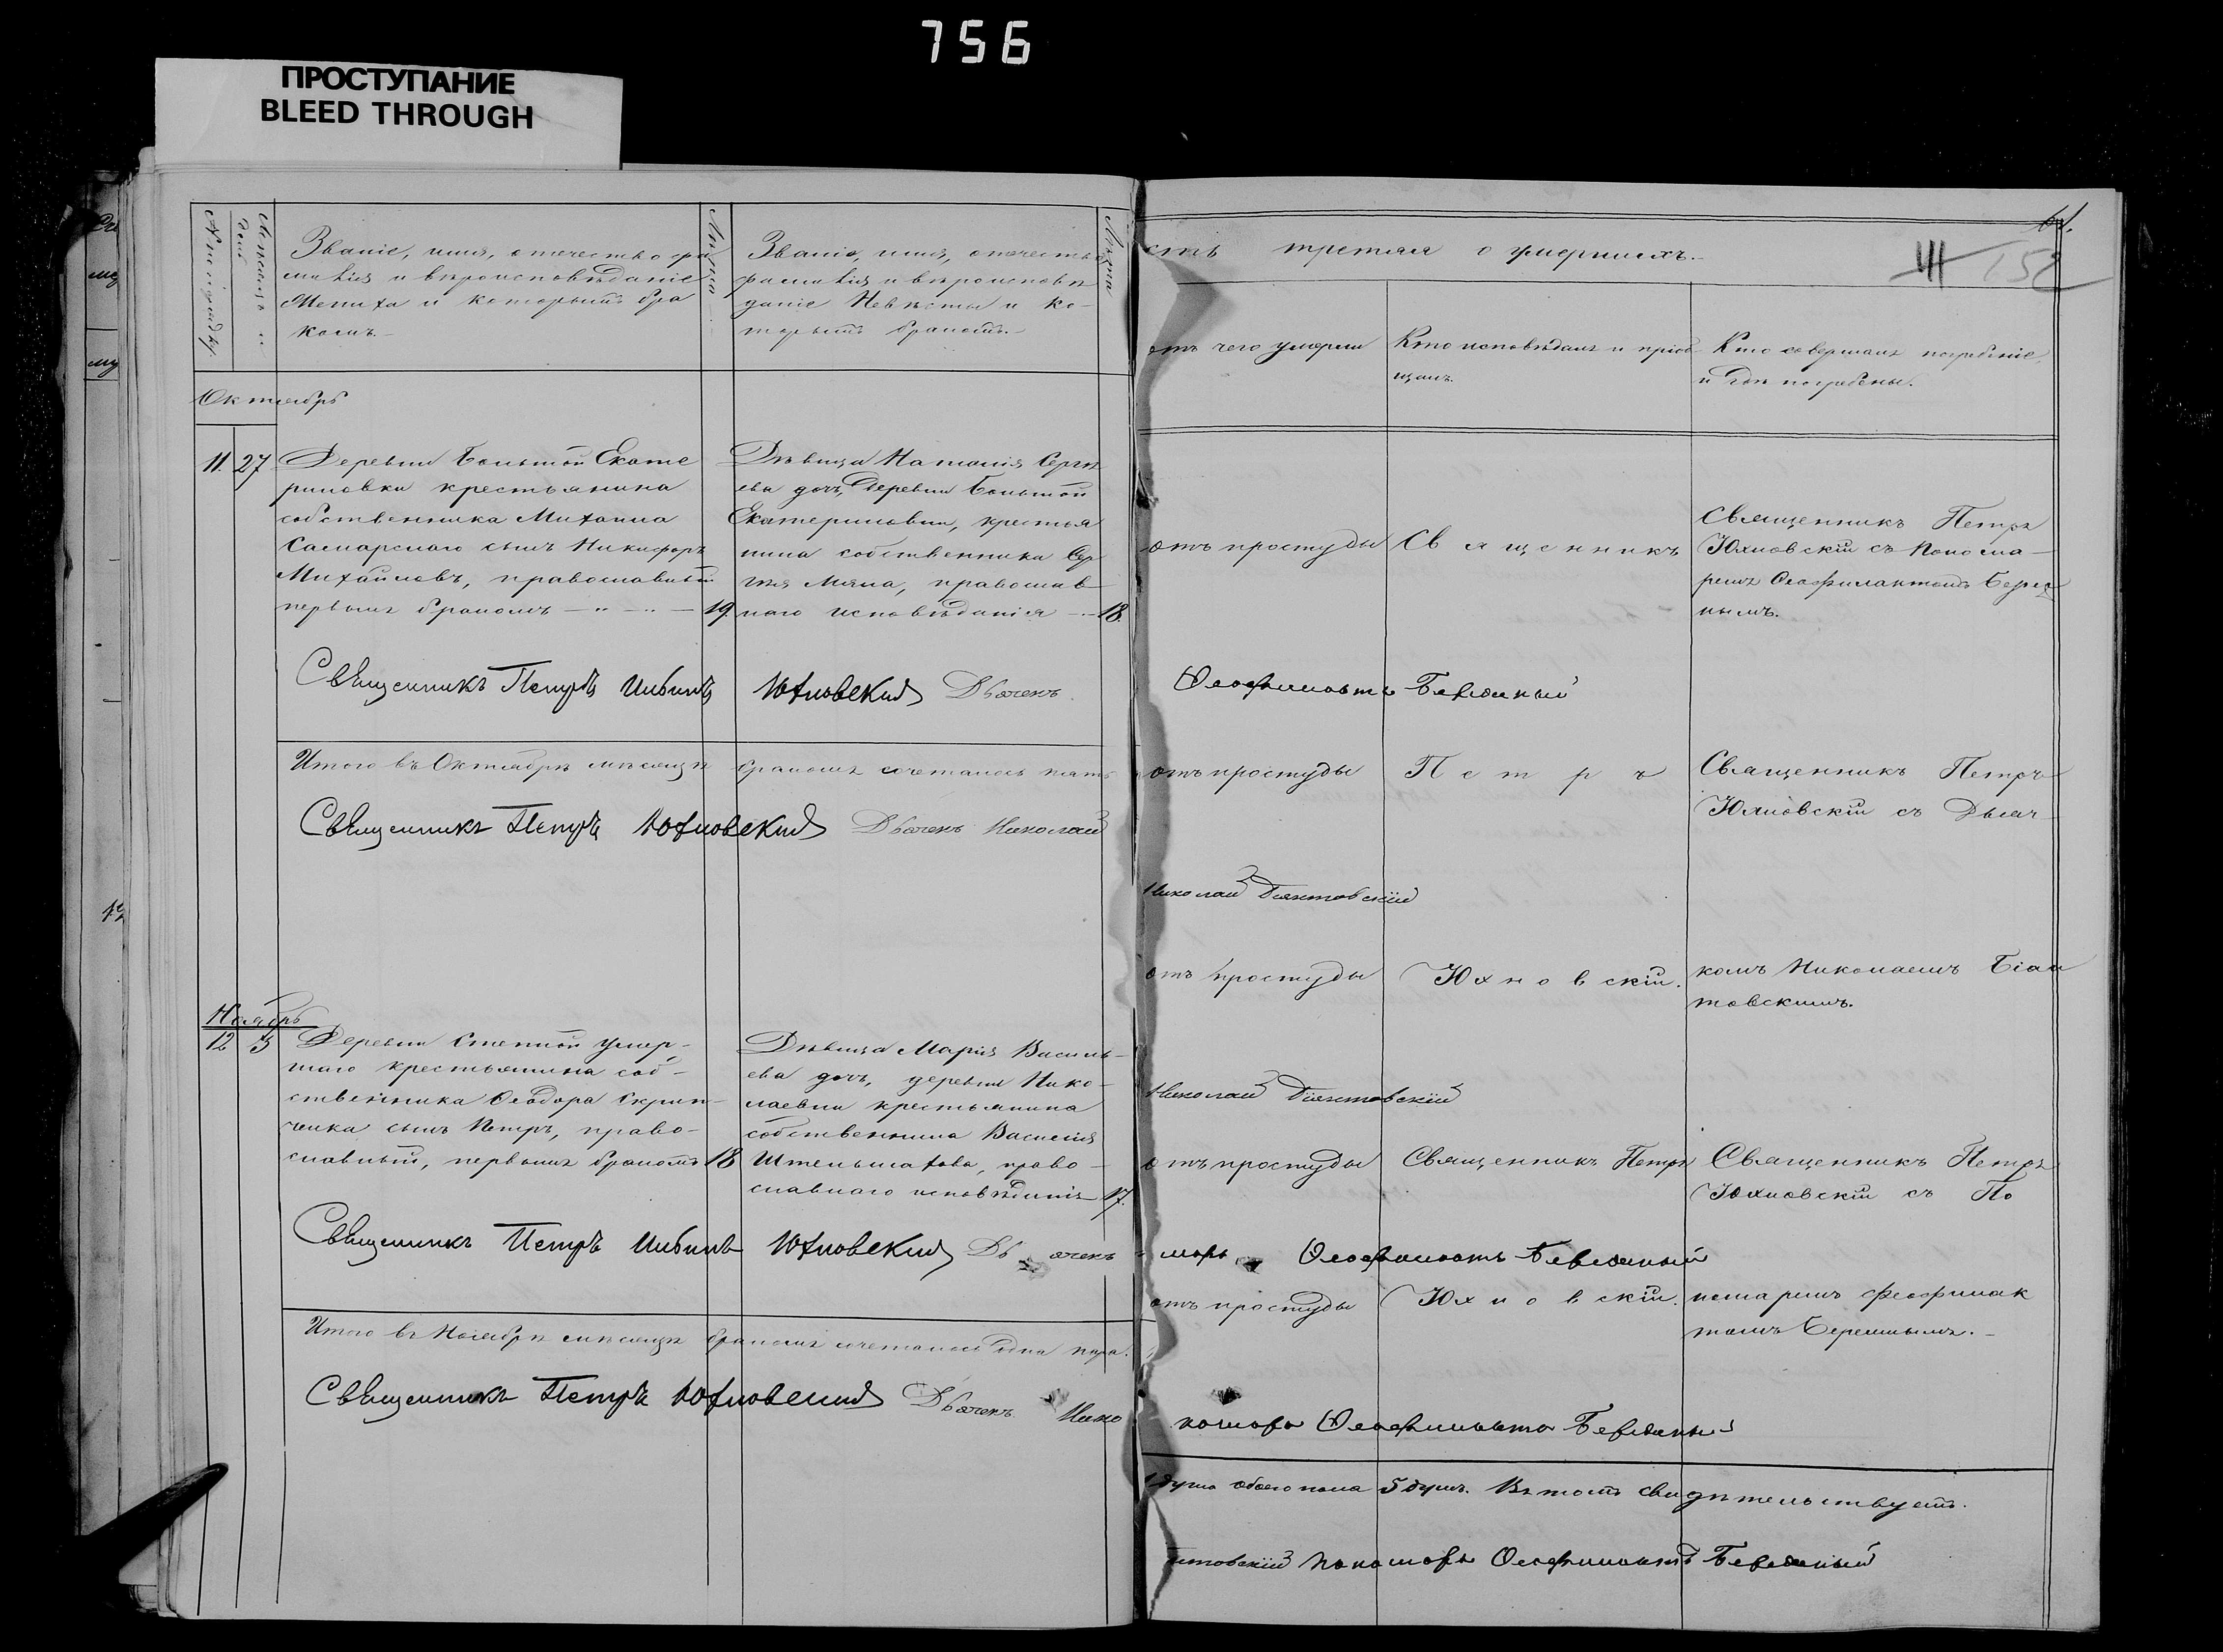 756
ПРОСТУПАНИЕ
BLEED THROUGH
№ по порядку
Мѣсяцъ и день
Званіе, имя, отчество, фа
милія и вѣроисповѣданіе
Жениха и которымъ бра
комъ.
Лѣта
Званіе, имя, отчество,
фамилія и вѣроисповѣ
даніе Невѣсты и ко-
торымъ бракомъ.
Лѣта
Октябрь
11. 27
Деревни Большой Екате
риновки крестьянина
собственника Михаила
Самарскаго сынъ Никифоръ
Михайловъ, православный
первымъ бракомъ 19.
Дѣвица Наталія Сергѣ
ева дочь, деревни Большой
Екатериновки, крестья
нина собственника Сер
гія православ
наго исповѣданія 18.
Священникъ Петръ Юхновскій Дьячекъ
Итого въ Октябрѣ мѣсяцѣ бракомъ сочеталось пять
Священникъ Петръ Юхновскій Дьячекъ Николай
Ноябрь
12 3
Деревни Степной умер-
шаго крестьянина соб-
ственника Ѳеодора Скрип-
ченка сынъ Петръ, право-
славный, первымъ бракомъ 18
Дѣвица Марія Василь-
ева дочь, деревни Нико-
лаевки крестьянина
собственника Василія
право-
славнаго исповѣданія 17.
Священникъ Петръ Юхновскій Дьячекъ
Итого въ Ноябрѣ мѣсяцѣ бракомъ сочеталось одна пара.
Священникъ Петръ Юхновскій Дьячекъ Нико
сть третья о умершихъ.
III 152
отъ чего умерли
Кто исповѣдалъ и пріоб
щалъ.
Кто совершалъ погребеніе
и гдѣ погребены.
отъ простуды
Священникъ
Священникъ Петръ
Юхновскій съ Понома-
ремъ Ѳеофилактомъ
нымъ.
Ѳеофилактъ
отъ простуды
Петръ
Священникъ Петръ
Юхновскій съ Дьяч-
Николай
отъ простуды
Юхновскій.
комъ Николаемъ
товскимъ.
Николай
отъ простуды
Священникъ Петръ
Священникъ Петръ
Юхновскій съ По
марь Ѳеофилактъ
отъ простуды
Юхновскій.
номаремъ Феофилак
томъ
номарь Ѳеофилактъ
душа обоего пола 5 душъ. Въ томъ свидѣтельствуетъ.
товскій Пономарь Ѳеофилактъ